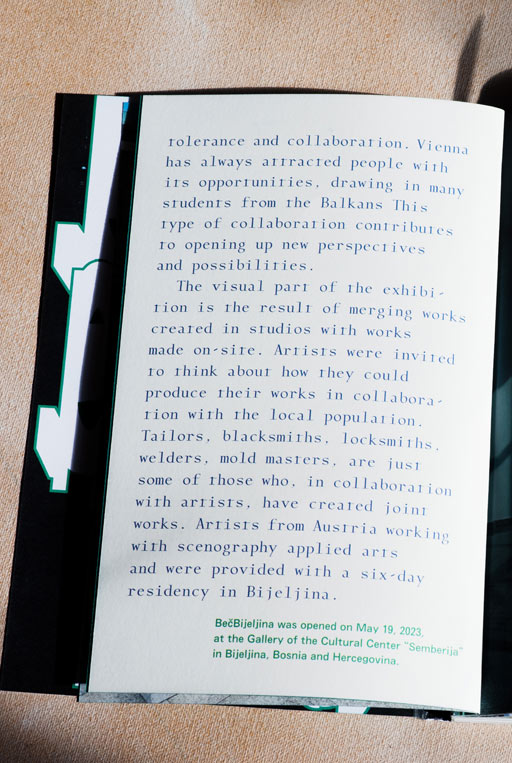 tolerance and collaboration. Vienna
has always attracted people with
its opportunities, drawing in many
students from the Balkans This
type of collaboration contributes
to opening up new perspectives
and possibilities.
The visual part of the exhibi-
tion is the result of merging works
created in studios with works
made on-site. Artists were invited
to think about how they could
produce their works in collabora-
tion with the local population.
Tailors, blacksmiths, locksmiths,
welders, mold masters, are just
some of those who, in collaboration
with artists, have created joint
works. Artists from Austria working
with scenography applied arts
and were provided with a six-day
residency in Bijeljina.
BečBijeljina was opened on May 19, 2023,
at the Gallery of the Cultural Center "Semberija"
in Bijeljina, Bosnia and Hercegovina.